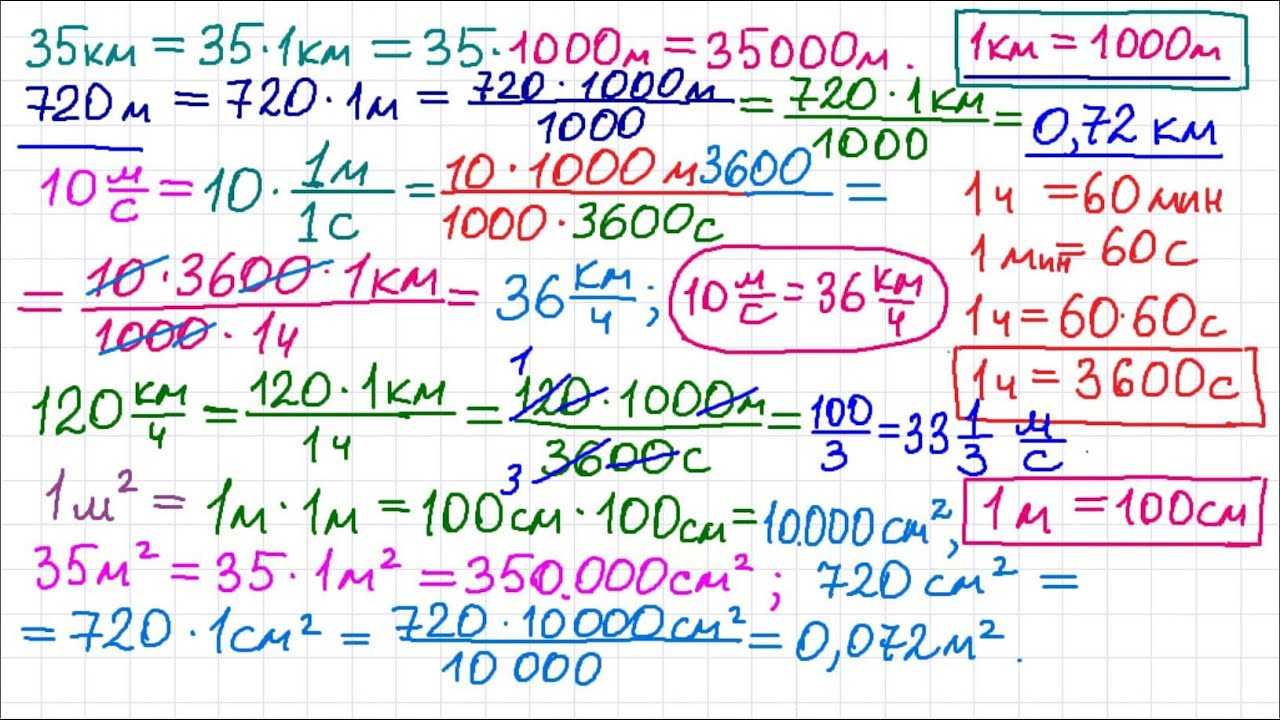 35км = 35·1км = 35·1000м = 35000м.
1км = 1000м
720м = 720·1м = 720·1000м/1000 = 720·1км/1000 = 0,72 км
10 м/с = 10 · 1м/1с = 10·1000м3600/1000·3600с =
1ч = 60мин
1мин = 60с
= 10·3600·1км/1000·1ч = 36 км/ч; 10 м/с = 36 км/ч
1ч = 60·60с
1ч = 3600с
120 км/ч = 120·1км/1ч = 120·1000м/3600с = 100/3 = 33 1/3 м/с
1
3
1м² = 1м·1м = 100см·100см = 10.000см²,
1м = 100см
35м² = 35·1м² = 350.000см²; 720см² =
= 720·1см² = 720·10000см²/10 000 = 0,072м².